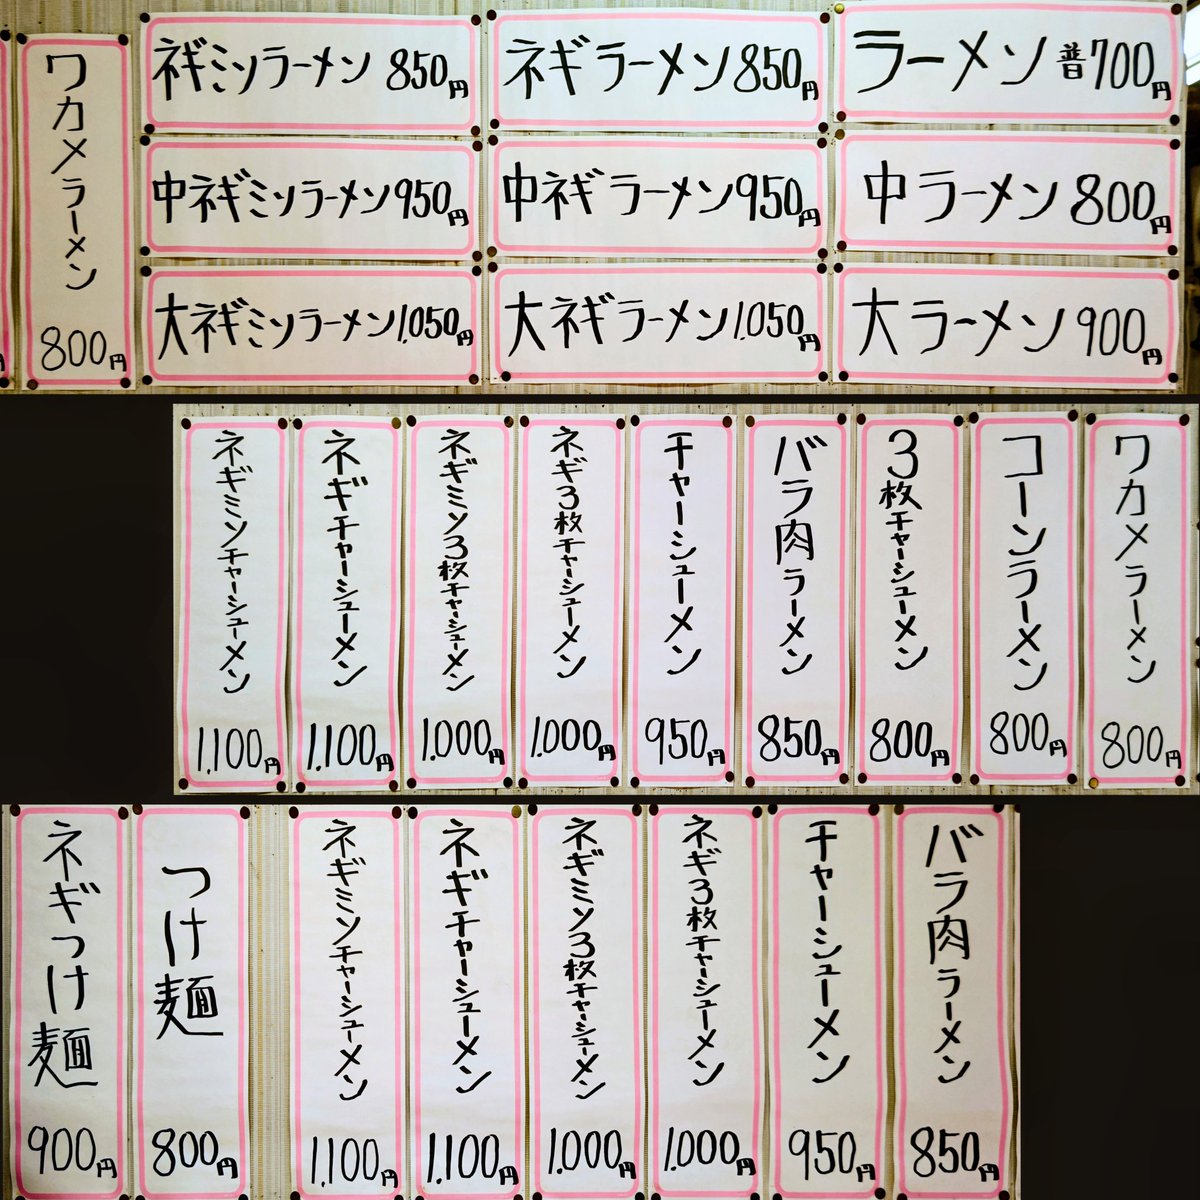 ラーメン 普700円
中ラーメン 800円
大ラーメン 900円
ネギラーメン 850円
中ネギラーメン 950円
大ネギラーメン 1.050円
ネギミソラーメン 850円
中ネギミソラーメン 950円
大ネギミソラーメン 1.050円
ワカメラーメン 800円
円
ワカメラーメン 800円
コーンラーメン 800円
3枚チャーシューメン 800円
バラ肉ラーメン 850円
チャーシューメン 950円
ネギ3枚チャーシューメン 1.000円
ネギミソ3枚チャーシューメン 1.000円
ネギチャーシューメン 1.100円
ネギミソチャーシューメン 1.100円
バラ肉ラーメン 850円
チャーシューメン 950円
ネギ3枚チャーシューメン 1.000円
ネギミソ3枚チャーシューメン 1.000円
ネギチャーシューメン 1.100円
ネギミソチャーシューメン 1.100円
つけ麺 800円
ネギつけ麺 900円